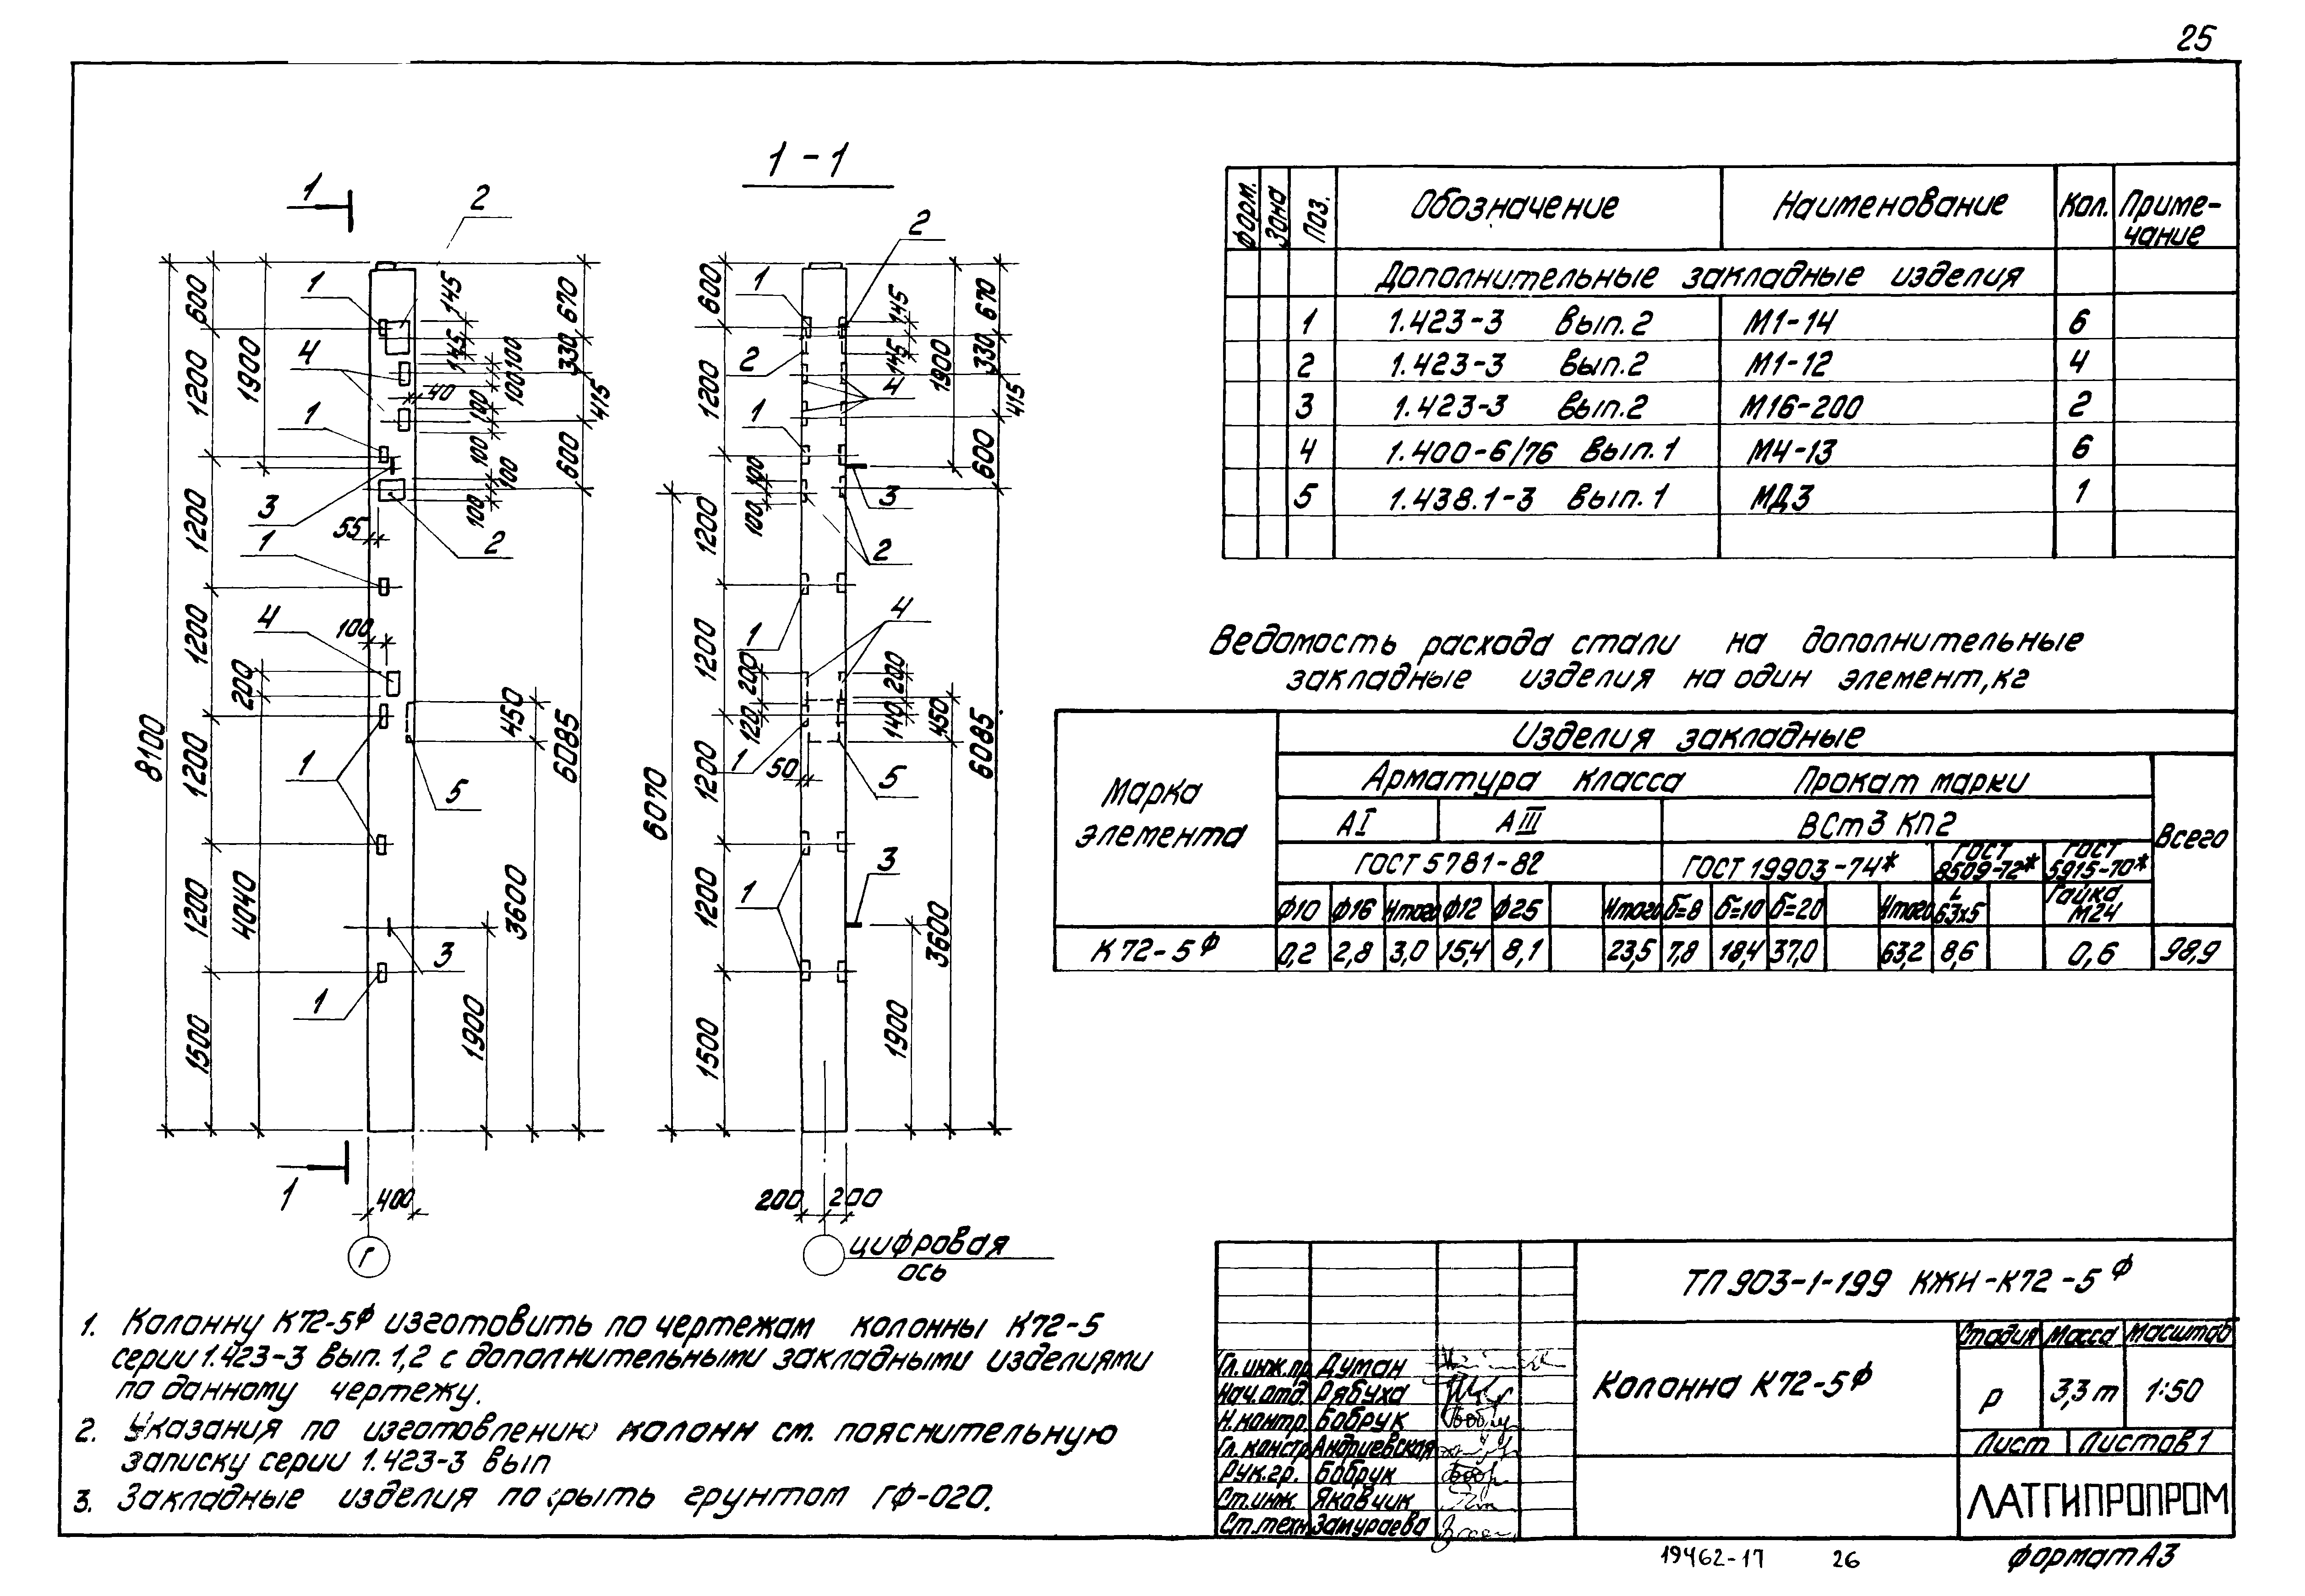 25
1-1
1
2
600
1200
1900
1200
1200
200
8100
1200
4040
1200
1500
1
4
1
3
1
4
1
3
1
145
145
100
100
40
100
100
100
100
55
2
100
5
670
330
415
600
450
6085
3600
1900
1
400
Г
2
1
2
1
600
1200
1200
1200
1200
1200
1500
6070
145
145
1900
670
330
415
600
4
3
2
100
100
1
4
200
120
200
140
450
50
1
5
6085
1
3
3600
1900
200
200
цифровая
ось
Форм.
Зона
Поз.
Обозначение
Наименование
Кол.
Приме-
чание
Дополнительные закладные изделия
1 1.423-3 Вып.2 М1-14 6
2 1.423-3 Вып.2 М1-12 4
3 1.423-3 Вып.2 М16-200 2
4 1.400-6/76 Вып.1 М4-13 6
5 1.438.1-3 Вып.1 МД3 1
Ведомость расхода стали на дополнительные
закладные изделия на один элемент, кг
Марка
элемента
Изделия закладные
Арматура класса Прокат марки
Всего
АI АIII ВСт3 КП2
ГОСТ 5781-82 ГОСТ 19903-74* ГОСТ 8509-72* ГОСТ 5915-70*
Ф10 Ф16 Итого Ф12 Ф25 Итого б=8 б=10 б=20 Итого L 63x5 Гайка М24
К72-5Ф 0,2 2,8 3,0 15,4 8,1 23,5 7,8 18,4 37,0 63,2 8,6 0,6 98,9
1. Колонну К72-5Ф изготовить по чертежам колонны К72-5
серии 1.423-3 вып. 1,2 с дополнительными закладными изделиями
по данному чертежу.
2. Указания по изготовлению колонн см. пояснительную
записку серии 1.423-3 вып
3. Закладные изделия покрыть грунтом ГФ-020.
ТП 903-1-199 КЖИ-К72-5Ф
Колонна К72-5Ф
Стадия Масса Масштаб
Р 3,3т 1:50
Лист Листов 1
ЛАТГИПРОПРОМ
Гл.инж.пр. Думан
Нач.отд. Рябуха
Н.контр. Бобрук
Гл.констр. Андриевская
Рук.гр. Бобрук
Ст.инж. Яковчик
Ст.техн. Замураева
19462-17 26
формат А3